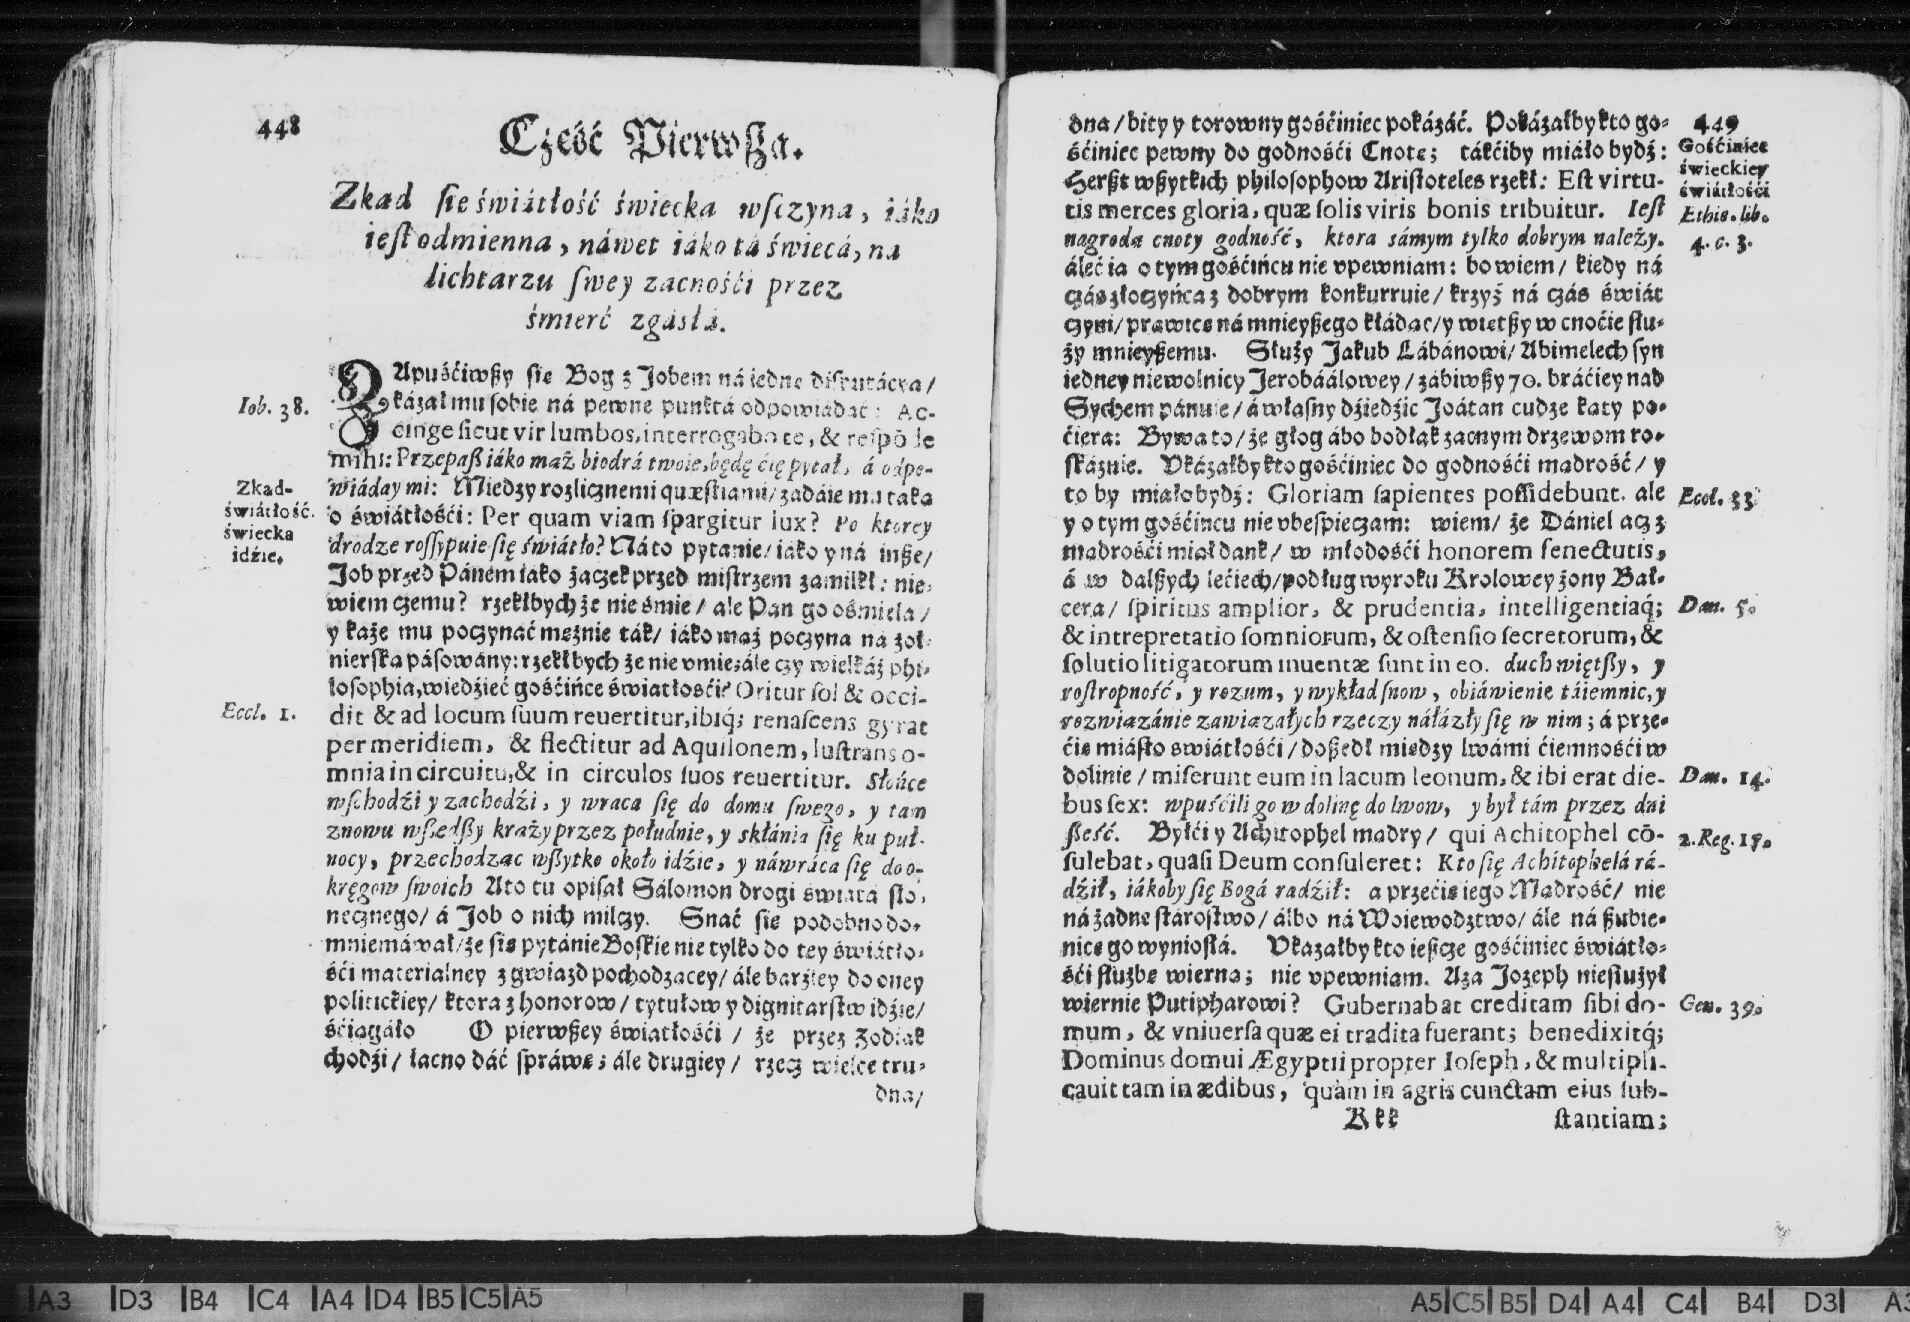 448
Cżęść Pierwsza.
Zkad sie świátłość świecka wsczyna, iáko
iest odmienna, náwet iáko tá świecá, na
lichtarzu swey zacnośći przez
śmierć zgásłá.
Iob. 38.
Zkad-
świátłość.
świecka
idźie.
Eccl. 1.
ZApuśćiwszy się Bog z Jobem ná iednę disputácyą/
kázał mu sobie ná pewne punktá odpowiádáć: Ac-
cinge sicut vir lumbos, interrogabo te, & respōde
mihi: Przepasz iáko mąż biodrá twoie, będę ćię pytał, á odpo-
wiáday mi: Miedzy rozlicznemi quæstiami/ zádáie mu táką
o świátłośći: Per quam viam spargitur lux? Po ktorey
drodze rossypuie się świátło? Ná to pytanie/ iáko y ná insze/
Job przed Pánem iáko żaczek przed mistrzem zámilkł: nie-
wiem czemu? rzekłbych że nie śmie/ ale Pan go ośmiela/
y każe mu poczynáć mężnie ták/ iáko mąż poczyna ná żoł-
nierską pásowány: rzekłbych że nie vmie; ále czy wielkáż phi-
losophia, wiedźieć gośćińce świátłosći? Oritur sol & occi-
dit & ad locum suum reuertitur, ibiq́; renascens gyrat
per meridiem, & flectitur ad Aquilonem, lustrans o-
mnia in circuitu, & in circulos suos reuertitur. Słońce
wschodźi y zachodźi, y wraca się do domu swego, y tam
znowu wszedszy krąży przez południe, y skłánia się ku puł-
nocy, przechodząc wszytko około idźie, y náwráca się do o-
kręgow swoich Ato tu opisał Sálomon drogi świátá sło-
necznego/ á Job o nich milczy. Snać się podobno do-
mniemáwał/ że się pytánie Boskie nie tylko do tey świátło-
śći materialney z gwiazd pochodzącey/ ále bárźiey do oney
politickiey/ ktora z honorow/ tytułow y dignitarstw idźie/
śćiągáło O pierwszey świátłośći / że przez Zodiak
chodźi/ łacno dáć spráwę; ále drugiey/ rzecz wielce tru-
dna/
449
dna/ bity y torowny gośćiniec pokázáć. Pokázałby kto go-
śćiniec pewny do godnośći Cnotę; tákćiby miáło bydź:
Herszt wszytkich philosophow Aristoteles rzekł: Est virtu-
tis merces gloria, quæ solis viris bonis tribuitur. Iest
nagrodą cnoty godność, ktora sámym tylko dobrym należy.
áleć ia o tym gośćińcu nie vpewniam: bo wiem/ kiedy ná
czás złoczyńca z dobrym konkurruie/ krzyż ná czás świát
czyni/ prawicę ná mnieyszego kłádąc/ y większy w cnoćie słu-
ży mnieyszemu. Służy Jakub Lábánowi/ Abimelech syn
iedney niewolnicy Jerobáálowey/ zábiwszy 70. bráćiey nad
Sychem pánuie/ á własny dźiedźic Joátan cudze kąty po-
ćiera: Bywa to/ że głog ábo bodłak zacnym drzewom ro-
skázuie. Vkázałby kto gośćiniec do godnośći mądrość/ y
to by miáło bydź: Gloriam sapientes possidebunt. ale
y o tym gośćińcu nie vbespieczam: wiem/ że Dániel acz z
mądrośći miał dank/ w młodośći honorem senectutis,
á w dalszych lećiech/ podług wyroku Krolowey żony Bal-
cera/ spiritus amplior, & prudentia, intelligentiaq́;
& intrepretatio somniorum, & ostensio secretorum, &
solutio litigatorum inuentæ sunt in eo. duch większy, y
rostropność, y rozum, y wykład snow, obiáwienie táiemnic, y
rozwiązánie záwiązáłych rzeczy nálázły się w nim; á prze-
ćię miásto swiátłośći/ doszedł miedzy lwámi ćiemnośći w
dolinie/ miserunt eum in lacum leonum, & ibi erat die-
bus sex: wpuśćili go w dolinę do lwow, y był tám przez dni
sześć. Byłći y Achitophel mądry/ qui Achitophel cō-
sulebat, quasi Deum consuleret: Kto się Achitophelá rá-
dźił, iákoby się Bogá radźił: a przećię iego Mądrość/ nie
ná żadne stárostwo/ álbo ná Woiewodztwo/ ále ná szubie-
nicę go wyniosłá. Vkazałby kto ieszcze gośćiniec świátło-
śći służbę wierną; nie vpewniam. Aza Jozeph niesłużył
wiernie Putipharowi? Gubernabat creditam sibi do-
mum, & vniuersa quæ ei tradita fuerant; benedixitq́;
Dominus domui Ægyptii propter Ioseph, & multipli-
cauit tam in ædibus, quàm in agris cunctam eius sub-
Kkk stantiam;
Gośćiniec
świeckiey
świátłośći
Ethic. lib.
4. c. 3.
Eccl. 33
Dan. 5.
Dan. 14.
2. Reg. 17.
Gen. 39.
A3 D3 B4 C4 A4 D4 B5 C5 A5
A5 C5 B5 D4 A4 C4 B4 D3 A3